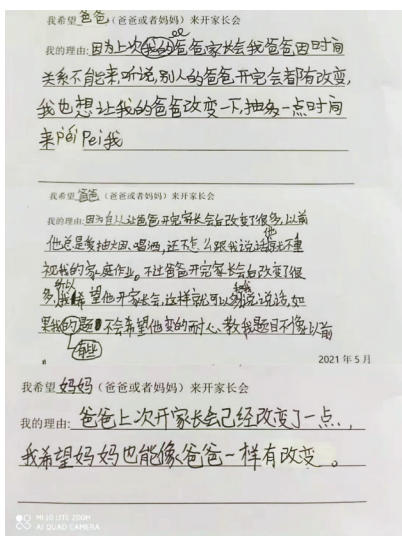 我希望 爸爸（爸爸或者妈妈）来开家长会
我的理由:因为上次我的爸爸家长会我爸爸因时间
关系不能来,听说别人的爸爸开完会都有改变,
我也想让我的爸爸改变一下,抽多一点时间
来péi Pei我
我希望 爸爸（爸爸或者妈妈）来开家长会
我的理由:因为自从让爸爸开完家长会后改变了很多,以前
他总是爱抽烟、喝酒,还不怎么跟我说话,他不重
视我的家庭作业。不过爸爸开完家长会后改变了很
多,所以我希望他开家长会,这样就可以说说话,如
果我的题不会希望他变的耐心、教我题目不像以前
作业
2021 年 5 月
我希望 妈妈（爸爸或者妈妈）来开家长会
我的理由: 爸爸上次开家长会已经改变了一点,
我希望妈妈也能像爸爸一样有改变。
MI 10 LITE ZOOM
AI QUAD CAMERA